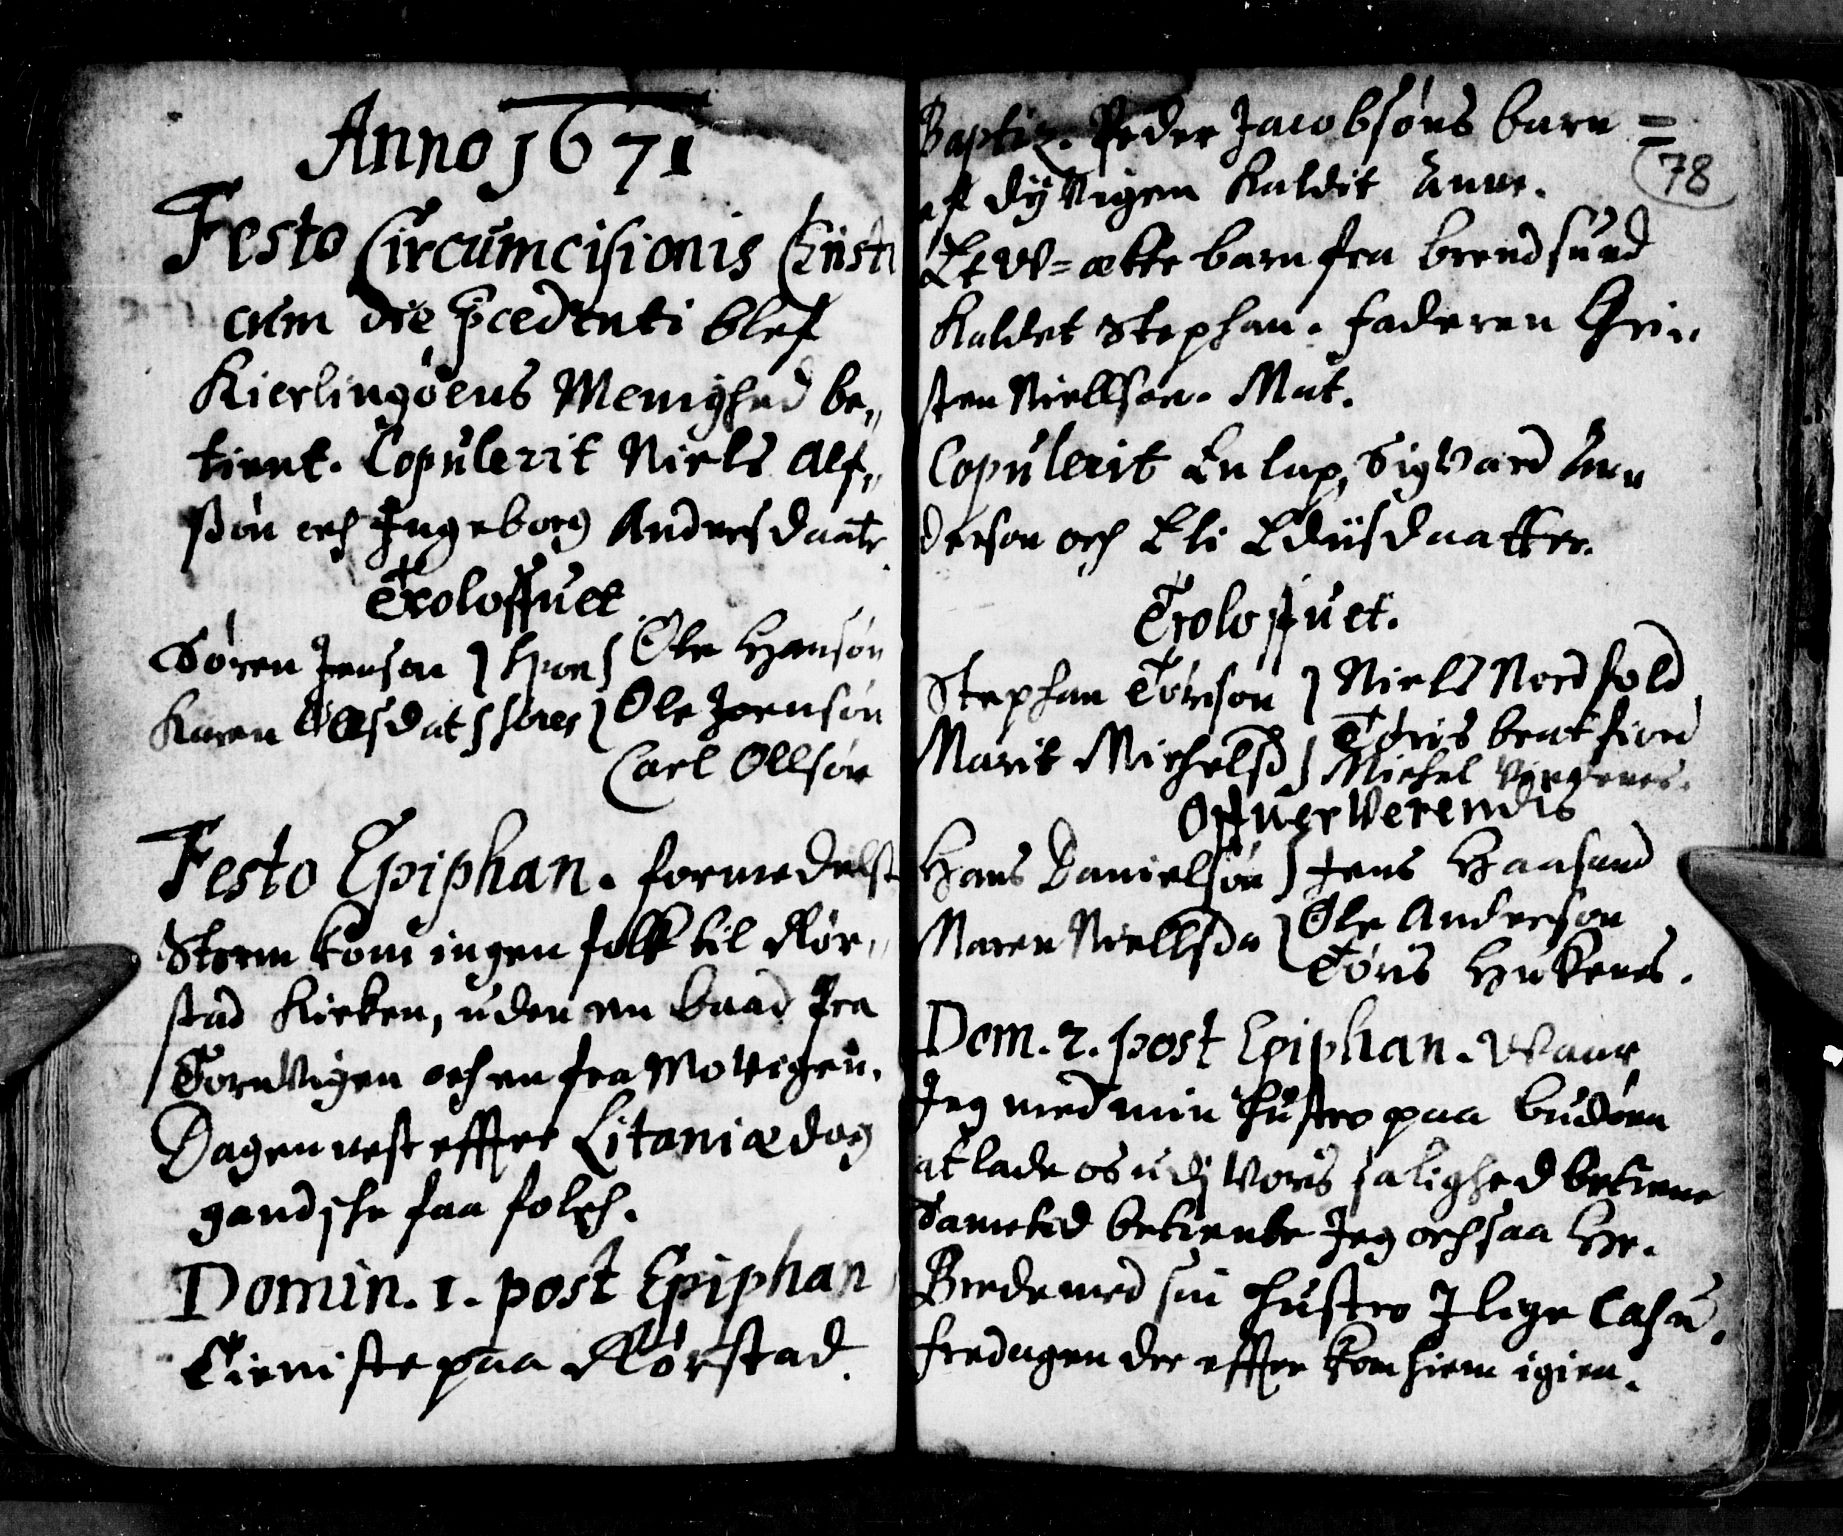 Anno 1671
Festo Circumcisionis Christi
cum die p̄cedenti blef
Kierlingøens Menighed be,,
tient. Copulerit Niels Alf,,
søn och Ingeborg Andersdaatr.
Troloffuet
Søren Jenson } spon { Ole Hansøn
Karen Ollsdat } sores { Ole Joensøn
Carl Ollsøn
Festo Epiphan. formedelst
Storm kom ingen folk til Rør,,
stad Kirken, uden en baad fra
Tornvigen och en fra Movigen.
Dagen nest effter Litaniædog
gandske faa folch.
Domin. 1. post Epiphan
Tieniste paa Rørstad.
Baptiz. Peder Jacobsøns barn =
78
af Dyvigen kaldit Anne.
Et W=ækte barn fra brendsund
kaldet Stephan. faderen Grin,,
sten Niellson. Mat.
Copulerit En lap, Sigvard Ann
derson och Eli Ediisdaatter.
Troloffuet.
Stephan Tørison } Niels Nordfold
Marit Michelsd } Tøris bentfiord
Michel
Offuerverendis
Hans Danielsøn } Jens Haasund
Maren Niellsda { Ole Anderson
Tøris Hukenes.
Dom. 2. post Epiphan. Waar
Jeg med min hustro paa budøen
at lade os udj voris salighed betiene
Sametid betiente Jeg ochsaa Hr.
Brede med sin hustro I lige Casu.
fredagen der effter kom hiem igien.